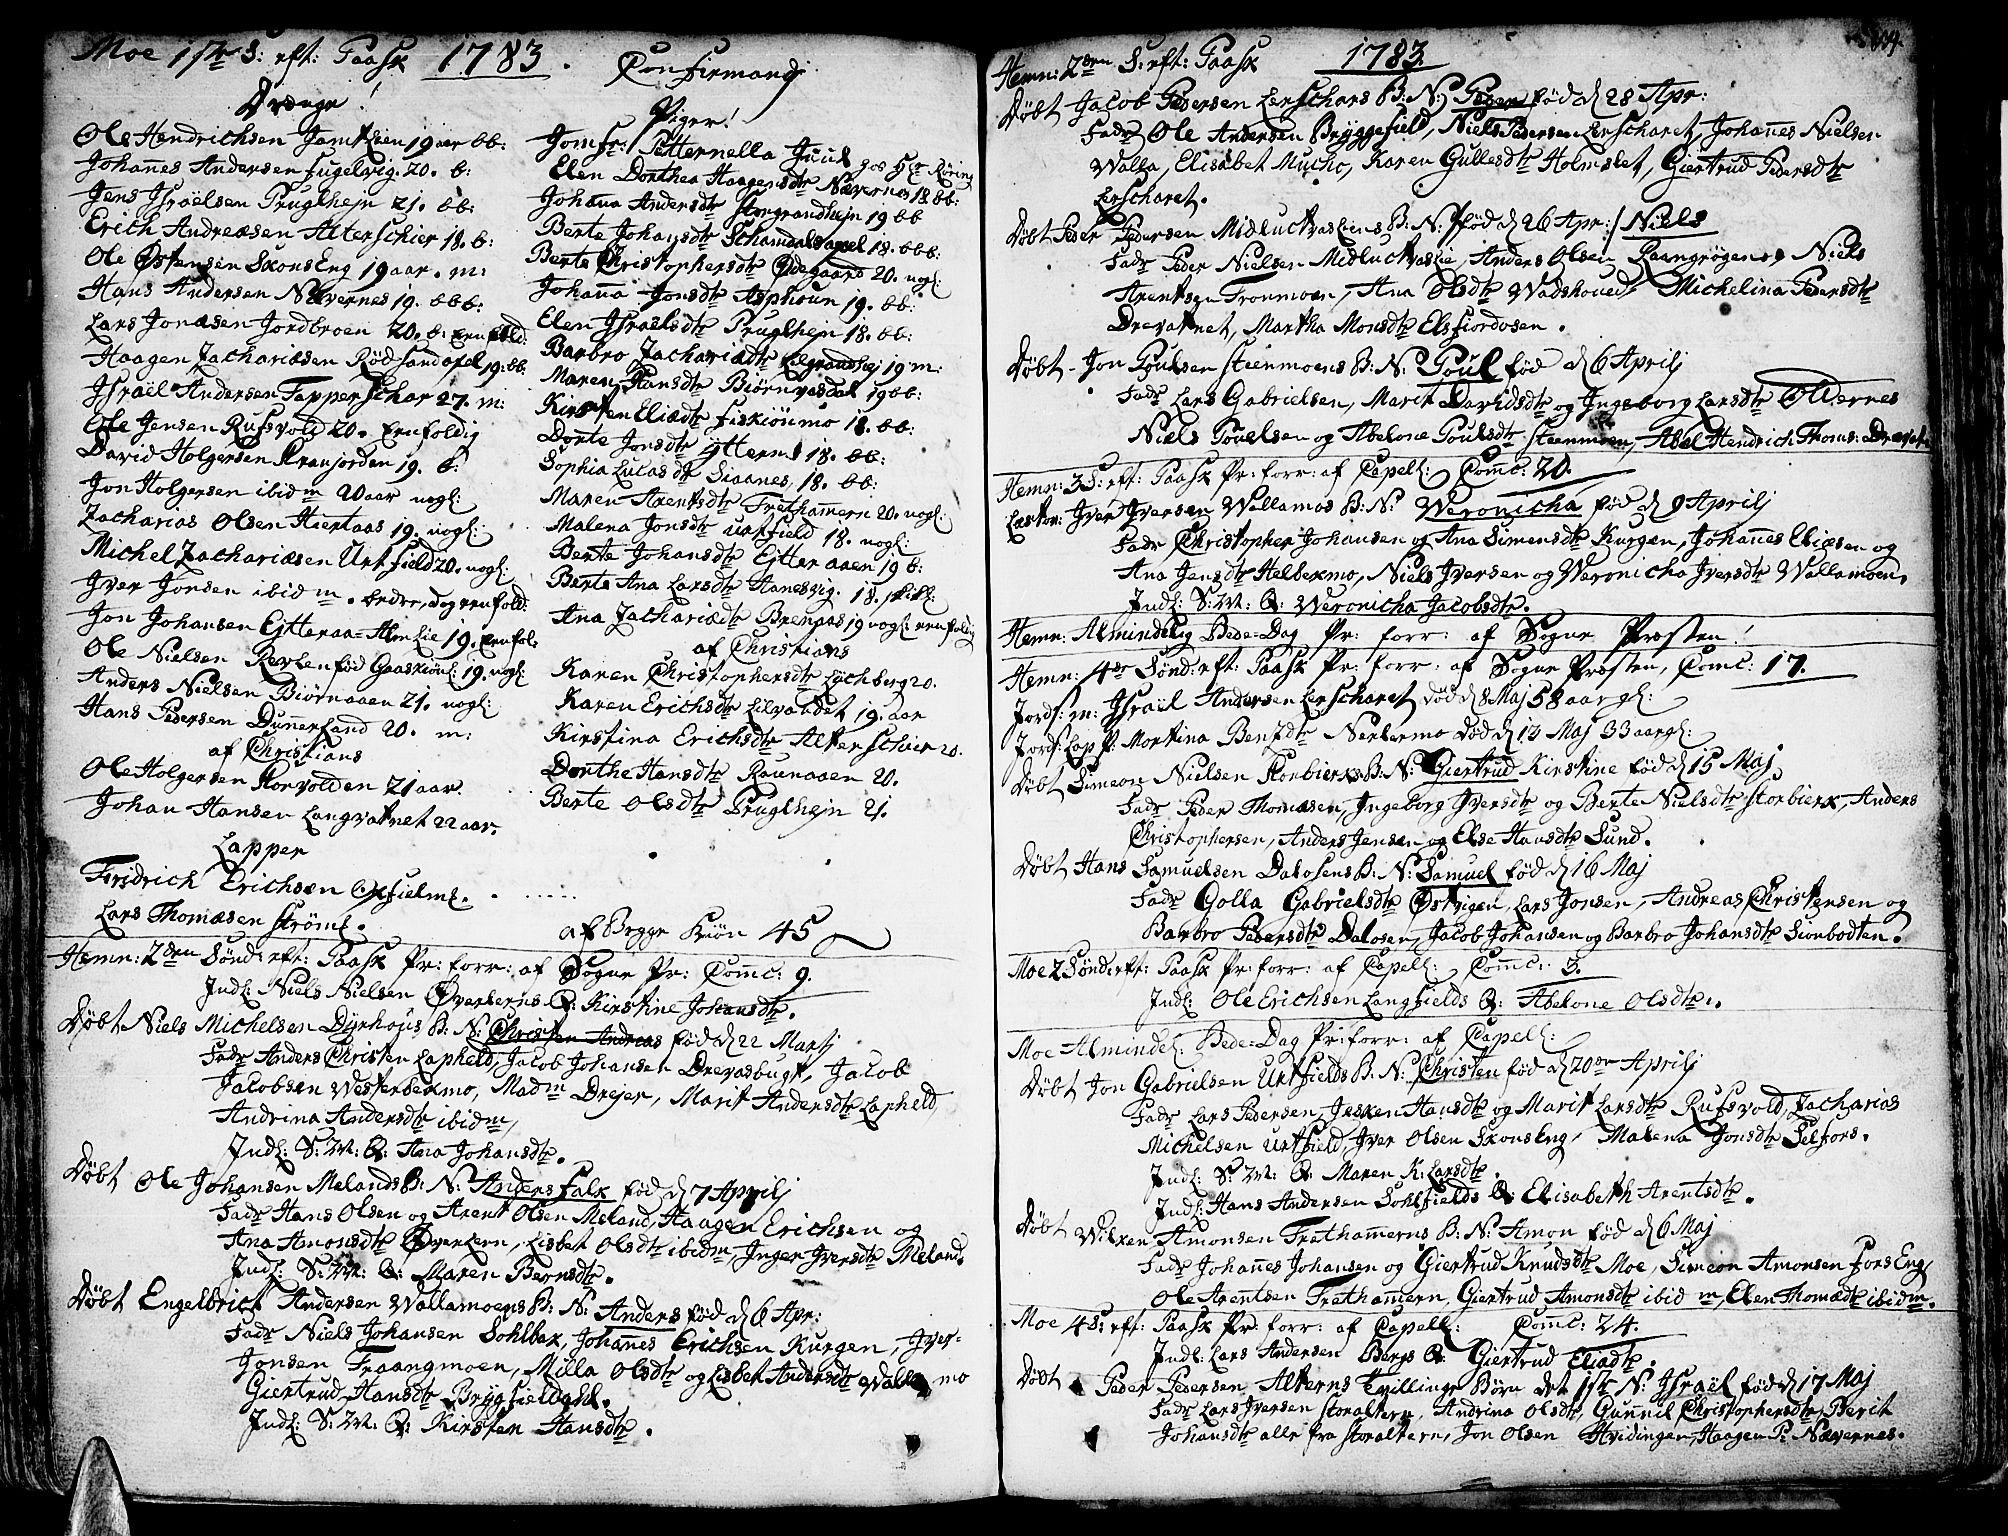 Moe 1ste S: eft: Paask 1783. Confirmandj
Drænge!
Ole Hendrichsen Jamtlien 19 aar bb:
Johañes Andersen Fugelvig. 20. b:
Jens Jsraelsen Pruglhejn 21. bb:
Erich Andreæsen Alterschier 18. b:
Ole Østensen Skons Eng 19 aar. m:
Hans Andersen Nævernes 19. bbb:
Lars Jonæsen Jordbroen 20. b: Eenfold:
Haagen Zachariæsen Rødsandasel 19. bb.
Jsraël Andersen Fapperschar 27. m:
Ole Jensen Rufsvold 20. Eenfoldig
David Holgersen Kranjorden 19. b:
Jon Holgersen ibidm 20 aar nogl:
Zacharias Olsen Hiertaas 19. nogl:
Michel Zachariæsen Urtfield 20. nogl:
Jver Jonsen ibidm. bedre, dog eenfold:
Jon Johansen Ejtteraa=Almlie 19. Eenfol:
Ole Nielsen Revlen fød Gaaskiønl: 19. nogl:
Anders Nielsen Biørnaaen 21. nogl:
Hans Pedersen Dunerland 20. m:
af Christians
Ole Holgersen Storvolden 21 aar.
Johan Hansen Langvatnet 22 aar.
Lapper
Friderich Erichsen Oxfielms.
Lars Thomæsen Strøml.
Piger!
Jomfr: Petternella Juul
Elen Dorthea Haagensdtr Nævernes 18 bb:
Johaña Andersdtr Storgrandhejn 19 bb
Berte Johansdtr Schamdalsasel 18. bbb:
Berte Christophersdtr Ødegaard 20. nogl:
Johaña Jonsdtr Asphoun 19. bb:
Elen Jsraelsdtr Pruglhejn 18. bb:
Barbro Zachariædtr Lilgrandhej 19 m:
Maren Hansdtr Biørnvasdal 19 bb:
Kirsten Eliædtr Fiskiønmo 18. bb:
Dorte Jonsdtr Ytteren 18. bb:
Sophia Lucasdtr Sioanes 18. bb:
Maren Arentsdtr Frethamern 20. nogl:
Malena Jonsdtr Urtfield 18. nogl:
Berte Johansdtr Ejtteraaen 19 b:
Berte Ana Larsdtr Hanesvig: 18.
Ana Zachariædtr Brennaas 19 nogl: eenfoldig
af Christians
Karen Christophersdtr Lychberg 20.
Karen Erichsdtr Lilvaadet 19. aar
Kirstina Erichsdtr Alterschier 20.
Dorthe Hansdtr Raunaaen 20.
Berte Olsdtr Pruglhejn 21.
af Begge Kiøn 45
Hemn: 2den Sønd: eft: Paask Pr: forr: af Sogne Pr: Comc: 9.
Jndl: Niels Nielsen Øverlerns Q: Kirstine Johansdtr.
Døbt Niels Michelsen Dyrhous B: N: Christen Andreas fød d 22 Martj
Fadr Anders Christen Lapheld, Jacob Johansen Drevasbugt, Jacob
Jacobsen Westerbekmo, Madm Drejer, Marit Andersdtr Lapheld,
Andrina Andersdtr ibidm,
Jndl: S: M: Q: Ana Johansdtr.
Døbt Ole Johansen Melands B: N: Anders Falk fød d 7 Aprilj
Fadr Hans Olsen og Arent Olsen Meland, Haagen Erichsen og
Ana Amonsdtr Øverlern, Lisbet Olsdtr ibidm, Jnger Jversdtr Meland.
Jndl: S: M: Q: Maren Berntsdtr.
Døbt Engelbrict Andersen Wallamoens B: N: Anders fød d 6 Apr:
Fadr Niels Johansen Sohlbek, Johañes Erichsen Kurgen, Jver
Jonsen Fraangmoen, Milla Olsdtr og Lisbet Andersdtr Wallamo
Giertrud Hansdtr Brygfieldahl.
Jndl: S: M: Q: Kirsten Hansdtr.
Hemn: 2den S: eft: Paask 1783.
Døbt Jacob Pedersen Lerschars B: N: Peder fød d 28 Apr:
Fadr Ole Andersen Bryggefield, Niels Pedersen Lerscharet, Johañes Nielsen
Walla, Elisabet Much, Karen Gullesdtr Holmslet, Giertrud Pedersdtr
Lerscharet.
Døbt Peder Pedersen Midluctvasliens B: N: fød d 26 Apr: Niels
Fadr Peder Nielsen Midluctvaslie, Anders Olsen Raangrøgene, Niels
Arentsen Fronmoen, Ana Olsdtr Wadshoued, Michelina Pedersdtr
Drevatnet, Martha Monsdtr Elsfiordosen.
Døbt Jon Poulsen Steenmoens B: N: Poul fød d 6 Aprilj
Fadr Lars Gabrielsen, Marit Davidsdtr og Jngeborg Larsdtr Oldernes
Niels Pouelsen og Abelone Poulsdtr Steenmoen, Abel Hendrich Thoms: Drevatn
Hemn: 3 S: eft: Paask Pr: forr: af Capell: Comc: 20.
Læstor: Jver Jversen Wallamos B: N: Weronicha fød d 9 Aprilj
Fadr Christopher Johansen og Ana Simensdtr Kurgen, Johañes Eliæsen og
Ana Jensdtr Helbekmo, Niels Jversen og Weronicha Jversdtr Wallamoen.
Jndl: S: M: Q: Weronicha Jacobsdtr.
Hemn: Almindelig Bede=Dag Pr: forr: af Sogne Prosten!
Hemn: 4de Sønd: eft: Paask Pr: forr: af Sogne Prosten, Comc: 17.
Jords: m: Jsraël Andersen Lerscharet død d 8 Maj 58 aar gl:
Jords: Lap P: Mortina Bentsdtr Nerlermo død d 13 Maj 33 aar gl:
Døbt Simeon Nielsen Storbierks B: N: Giertrud Kirstine fød d 15 Maj
Fadr Peder Thomæsen, Jngeborg Jversdtr og Berte Nielsdtr Storbierk, Anders
Christophersen, Anders Jensen og Else Hansdtr Sund.
Døbt Hans Samuelsen Dalosens B: N: Samuel fød d 16 Maj
Fadr Golla Gabrielsdtr Østvigen, Lars Jonsen, Andreas Christensen og
Barbro Pedersdtr Dalosen, Jacob Johansen og Barbro Johansdtr Sionbodten.
Moe 2 Sønd: eft: Paask Pr: forr: af Capell: Comc: 3.
Jndl: Ole Erichsen Langfields Q: Abelone Olsdtr.
Moe Almindel: Bede=Dag Pr: forr: af Capell:
Døbt Jon Gabrielsen Urtfields B: N: Christen fød d 20de Aprilj
Fadr Lars Pedersen, Jesken Hansdtr og Marit Larsdtr Rufsvold, Zacharias
Michelsen Urtfield, Jver Olsen Skons Eng, Malena Jonsdtr Selfors.
Jndl: S: M: Q: Maren K: Larsdtr.
Jndl: Hans Andersen Sohlfields Q: Elisabeth Arentsdtr.
Døbt Wilken Amonsen Frethamerns B: N: Amon fød d 6 Maj
Fadr Johañes Johansen og Giertrud Knudsdtr Moe, Simeon Amonsen Fors Eng,
Ole Arentsen Frethamern, Giertrud Amonsdtr ibidm, Elen Thomædtr ibidm.
Moe 4 S: eft: Paask Pr: forr: af Capell: Comc: 24.
Jndl: Lars Andersen Bergs Q: Giertrud Eliædtr.
Døbt Peder Pedersen Alterns Tvillinge Børn det 1ste N: Jsraël fød d 17 Maj
Fadr Lars Jversen Storaltern, Andrina Olsdtr, Guñnil Christophersdtr, Berit
Johansdtr alle fra Storaltern, Jon Olsen Hvidingen, Haagen P: Nævernes.